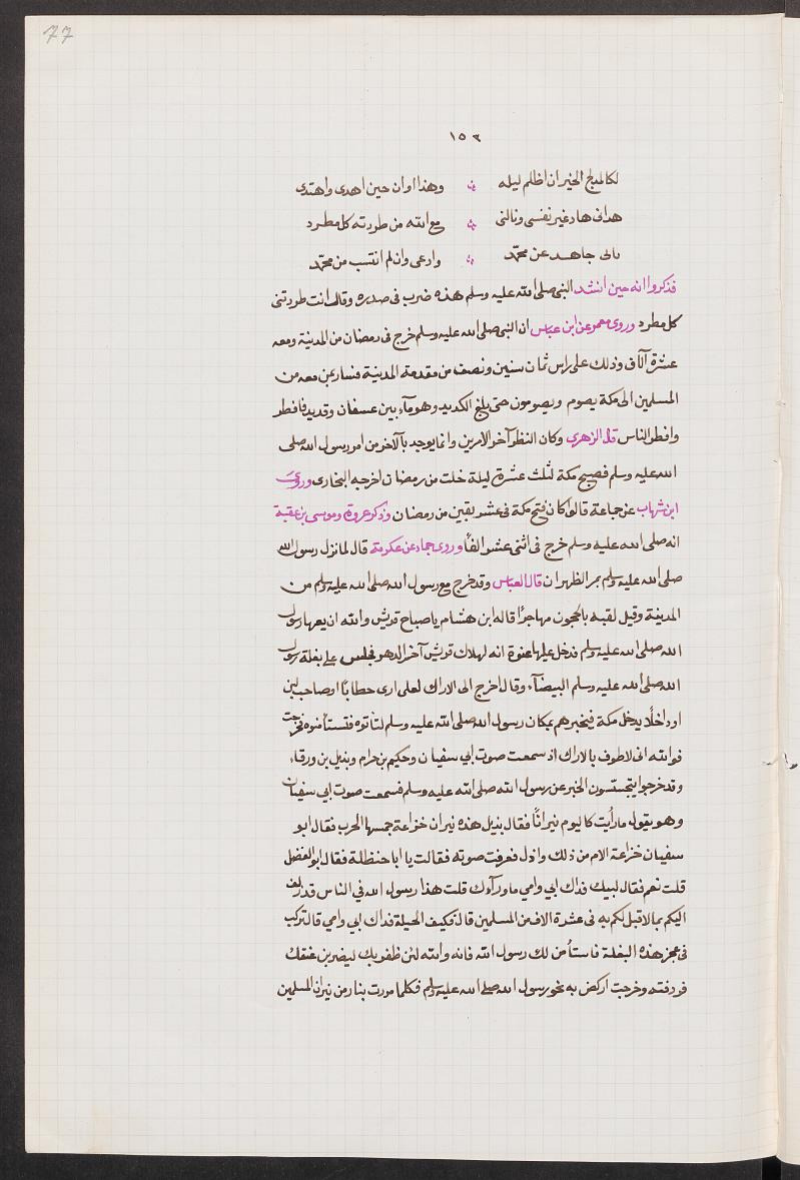 77
١٥٢
لكالمدلج الحيران اظلم ليله ؞ وهذا اوان حين اهدى واهتدى
هدانى هاد غير نفسى ونالنى ؞ مع الله من طردته كل مطرد
نائى جاهد عن محمّد ؞ وادعى وان لم انتسب من محمّد
فذكروا انه حين انشد النبى صلى الله عليه وسلم هذه ضرب فى صدره وقال انت طردتنى
كل مطرد وروى معمر عن ابن عباس ان النبى صلى الله عليه وسلم خرج فى رمضان من المدينة ومعه
عشرة آلاف وذلك على راس ثمان سنين ونصف من مقدمه المدينة فسار بمن معه من
المسلمين الى مكة يصوم ويصومون حتى بلغ الكديد وهو مآء بين عسفان وقديد فافطر
وافطر الناس قال الزهرى وكان الفطر آخر الامرين وانما يوجد بالآخر من امر رسول الله صلى
الله عليه وسلم فصبح مكة لثلث عشرة ليلة خلت من رمضان اخرجه البخارى وروى
ابن شهاب عن جماعة قالوا كان فتح مكة فى عشر بقين من رمضان وذكر عروة وموسى بن عقبة
انه صلى الله عليه وسلم خرج فى اثنى عشر الفًا وروى حماد عن عكرمة قال لما نزل رسول الله
صلى الله عليه وسلم بمر الظهران قال العباس وقد خرج مع رسول الله صلى الله عليه وسلم من
المدينة وقيل لقيه بالجحون مهاجرًا قاله ابن هشام ياصباح قريش والله ان بعها رسول
الله صلى الله عليه وسلم فدخل عليها عنوة انه لهلاك قريش آخر الدهر فجلس على بغلة رسول
الله صلى الله عليه وسلم البيضآء وقال اخرج الى الاراك لعلى ارى حطابًا او صاحب لبن
او داخلًا يدخل مكة فيخبرهم بمكان رسول الله صلى الله عليه وسلم لتاتوه فتستأمنوه فخرجت
فوالله انى لاطوف بالاراك اذ سمعت صوت ابي سفيان وحكيم بن حزام وبذيل بن ورقاء
وقد خرجوا يتجسسون الخبر عن رسول الله صلى الله عليه وسلم فسمعت صوت ابي سفيان
وهو يقول مارأيت كاليوم نيرانًا فقال بذيل هذه نيران خزاعة حمسها الحرب فقال ابو
سفيان خزاعة الام من ذلك واذل فعرفت صوته فقالت يا ابا حنظلة فقال ابو الفضل
قلت نعم فقال لبيك فداك ابي وامي ماورآءك قلت هذا رسول الله فى الناس قد زلف
اليكم بما لاقبل لكم به فى عشرة الاف من المسلمين قال فكيف الحيلة فداك ابي وامي قال تركب
فى عجز هذه البغلة فاستأمن لك رسول الله فانه والله لئن ظفر بك ليضربن عنقك
فردفته وخرجت اركض به نحو رسول الله صلى الله عليه وسلم فكلما مررت بنار من نيران المسلمين